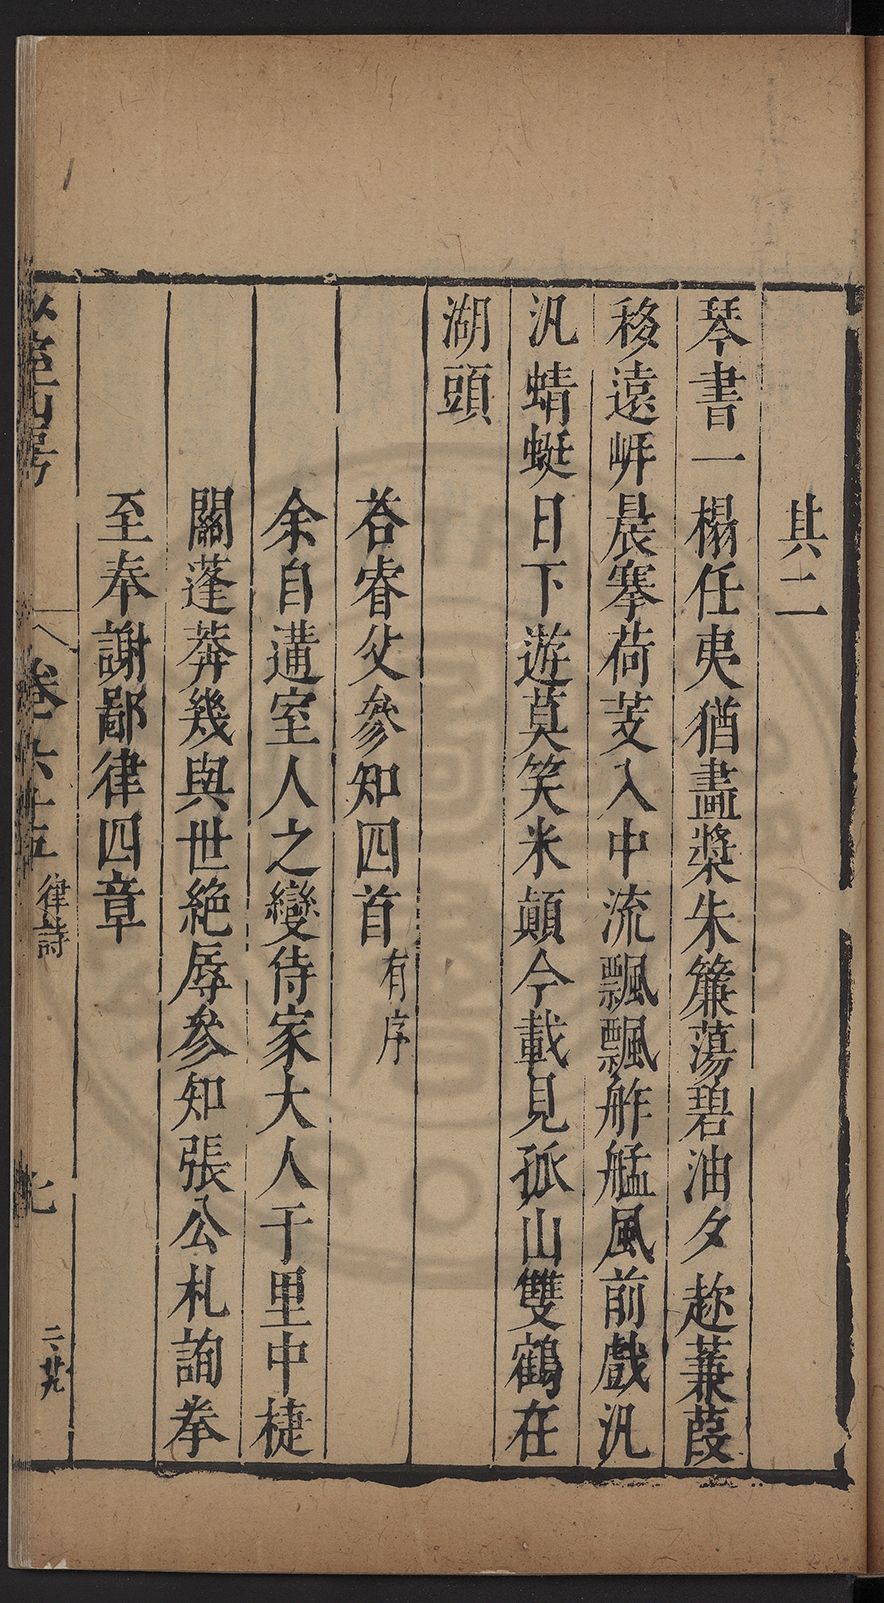 其二
琴書一榻任夷猶畫槳朱簾蕩碧油夕趂蒹葭
移遠岍晨搴荷芰入中流飄飄舴艋風前戲汎
汎蜻蜓日下遊莫笑米顛今載見孤山雙鶴在
湖頭
荅睿父參知四首有序
余自遘室人之變侍家大人于里中揵
關蓬莾幾與世絶辱參知張公札詢拳
至奉謝鄙律四章
卷六十五 律詩